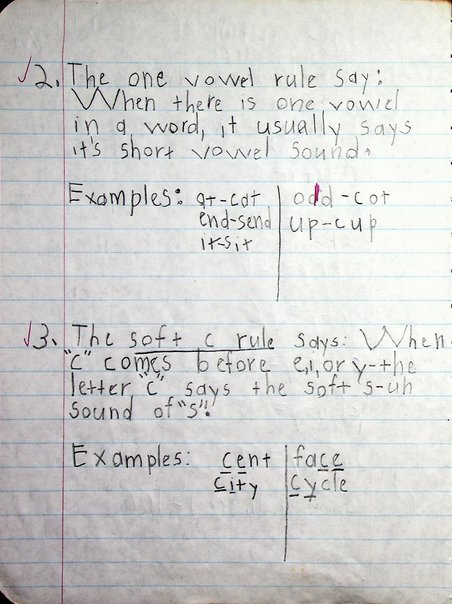 √2. The one vowel rule say:
When there is one vowel
in a word, it usually says
it's short vowel sound.
Examples: at-cat odd-cot
end-send up-cup
it-sit
√3. The soft c rule says: When
"c" comes before e,i, or y-the
letter "c" says the soft s-uh
sound of "s".
Examples: cent face
city cycle